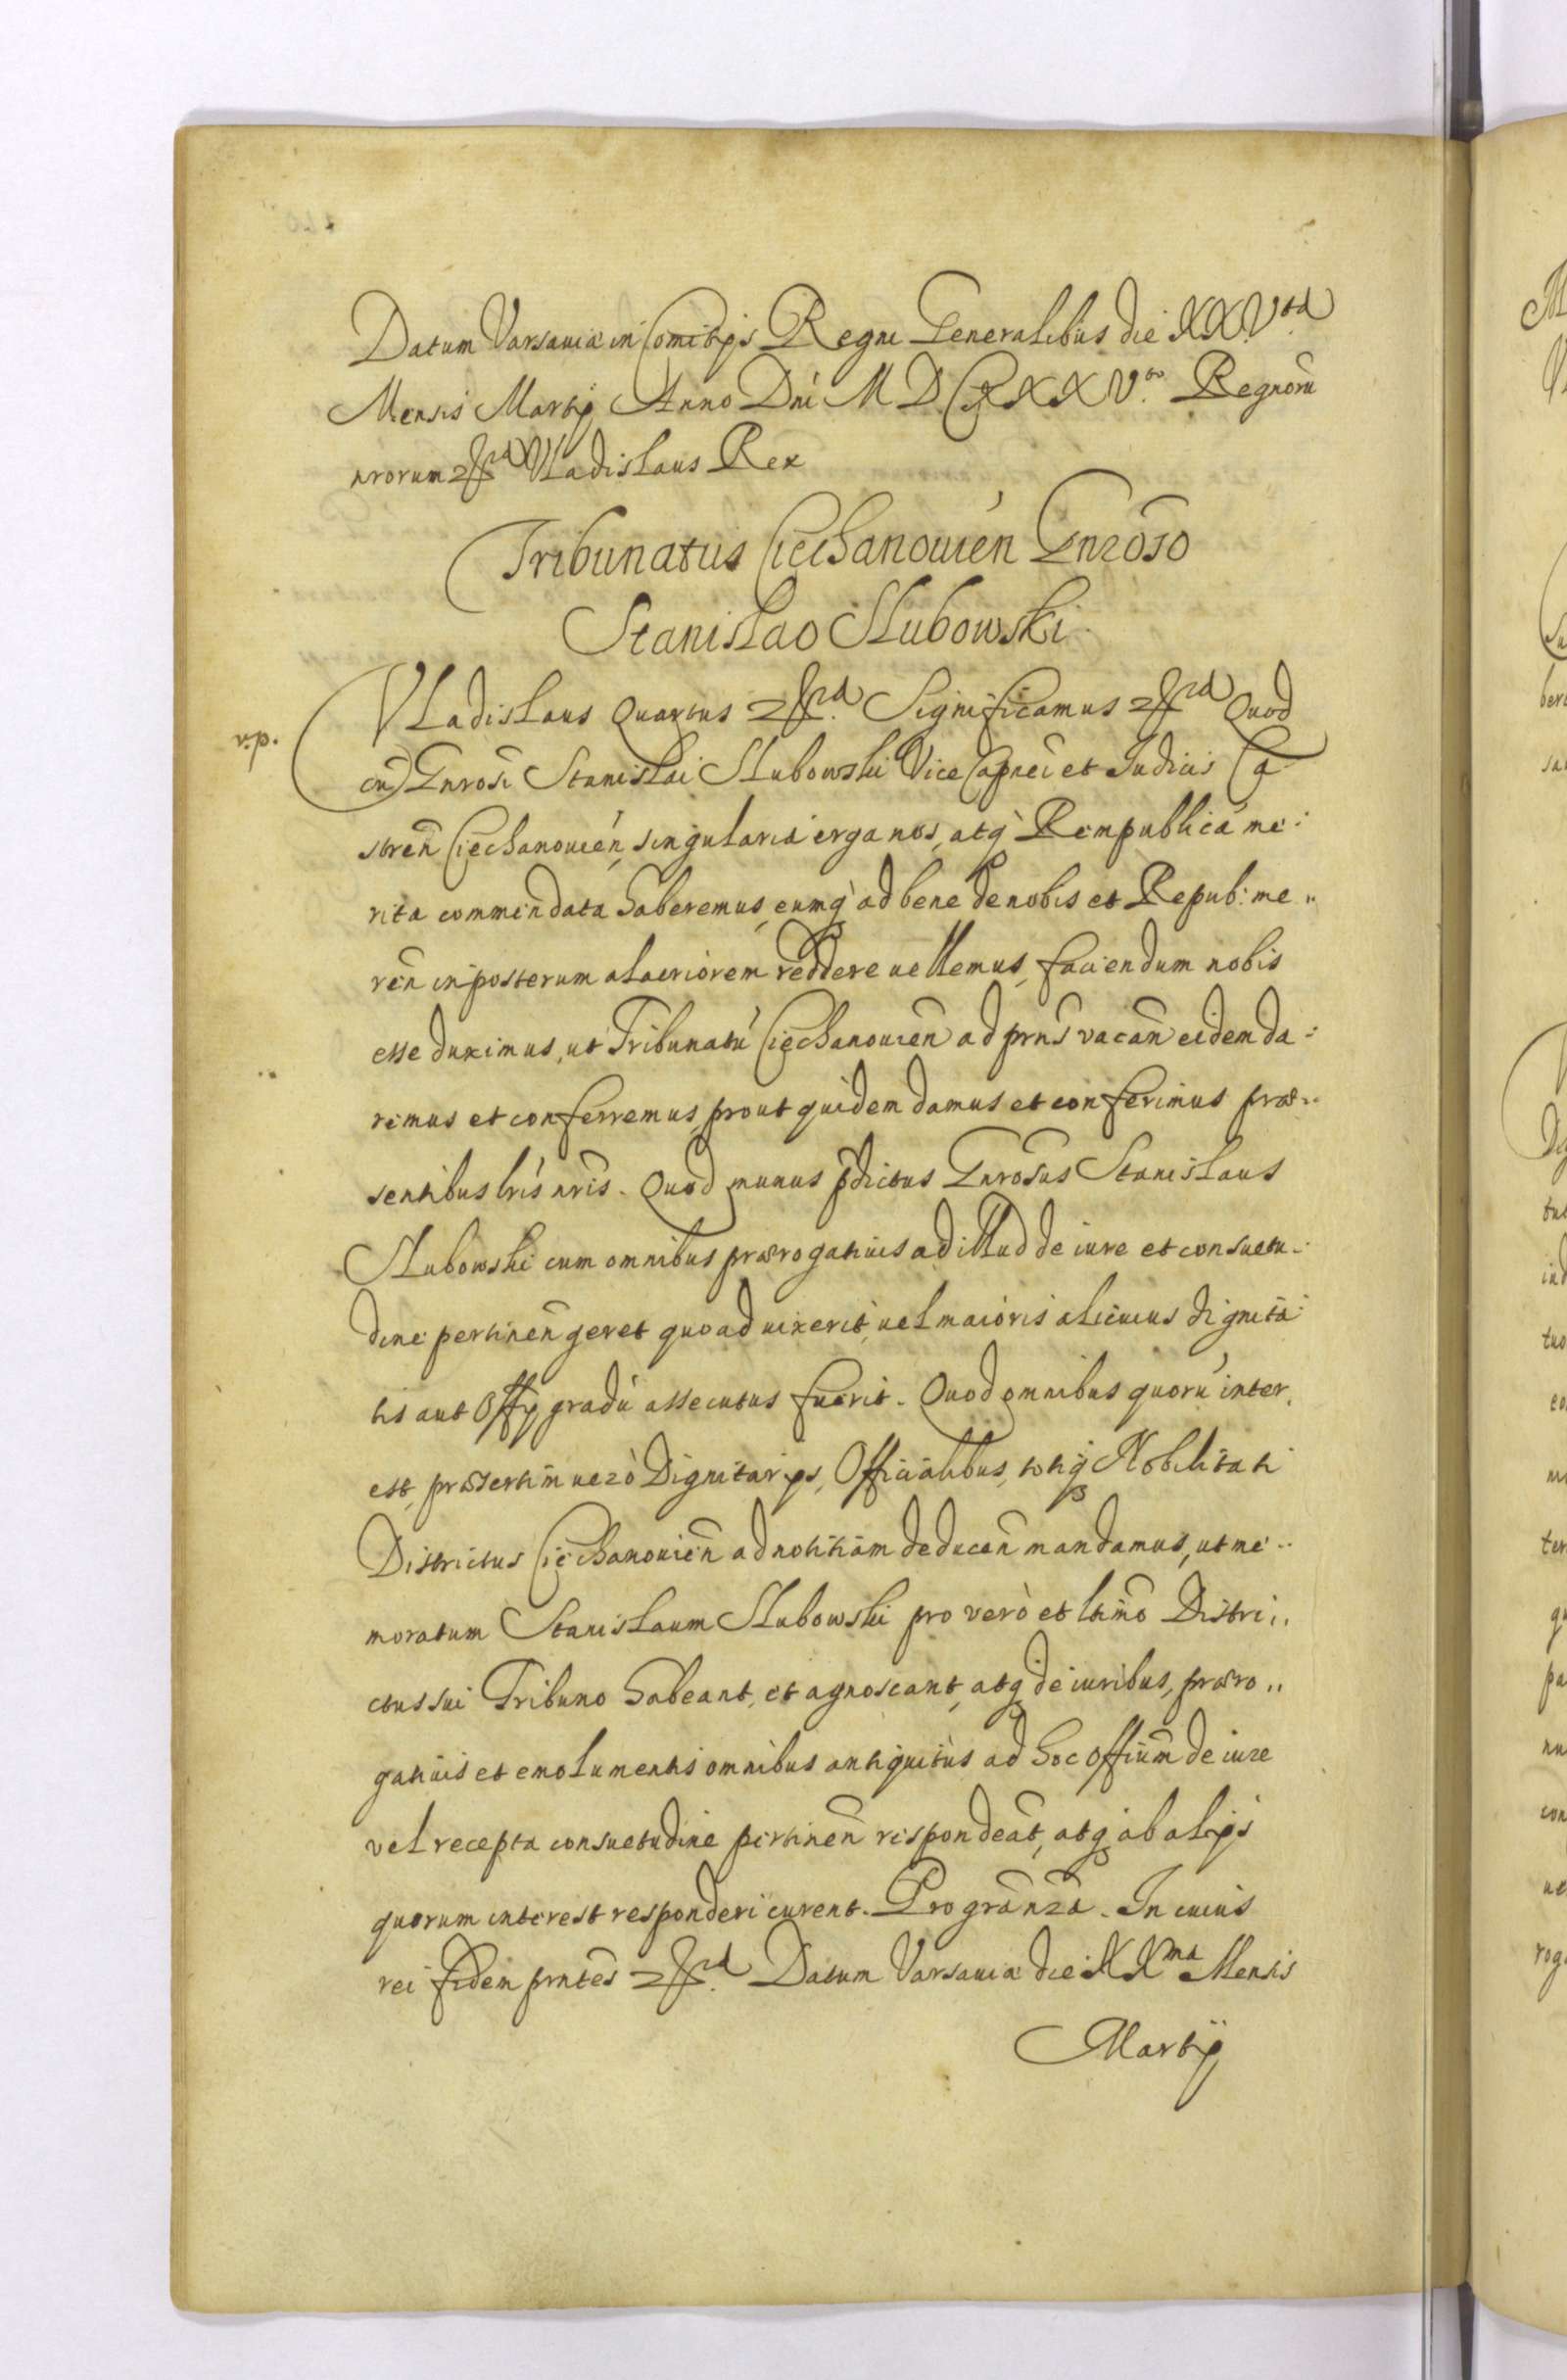 Datum Varsauiæ in Comitÿs Regni Generalibus die XXV.ta
Mensis Martÿ Anno Dni M D C XXX V.to Regnorũ
nrorum &c Vladislaus Rex
Tribunatus Ciechanouień Gnroso
Stanislao Slubowski
Vladislaus Quartus &c. Significamus &c Quod
cũ Gnrosi Stanislai Slubowski Vice Capnei et Iudicis Ca
stren̄ Ciechanouień, singularia erga nos, atq̀ Rempublicã me:
rita commendata haberemus, eumq̀ ad bene de nobis et Repub: me,,
ren̄ in posterum alacriorem reddere uellemus, faciendum nobis
esse duximus, ut Tribunatũ Ciechanouien̄ ad prns vacan̄ eidem da:
remus et conferremus, prout quidem damus et conferimus præ:
sentibus lris nris. Quod munus pdictus Gnrosus Stanislaus
Slubowski cum omnibus prærogatiuis ad illud de iure et consuetu:
dine pertinen̄ geret quoad uixerit, uel maioris alicuius dignita:
tis aut Offÿ gradũ assecutus fuerit. Quod omnibus quorũ inter,
est, præsertim uerò Dignitarÿs, Officialibus, totiq̀ Nobilitati
Districtus Ciechanouien̄ ad notitiam deducen̄ mandamus, ut me:
moratum Stanislaum Slubowski pro vero et ltimo Distri,,
ctus sui Tribuno habeant, et agnoscant, atq̀ de iuribus, præro,,
gatiuis et emolumentis omnibus antiquitùs ad hoc Offium de iure
vel recepta consuetudine pertinen̄ respondeãt, atq̀ ab alÿs
quorum interest responderi curent. Pro gra nra. In cuius
rei fidem pntes &c. Datum Varsauiæ die XX ma Mensis
Martÿ